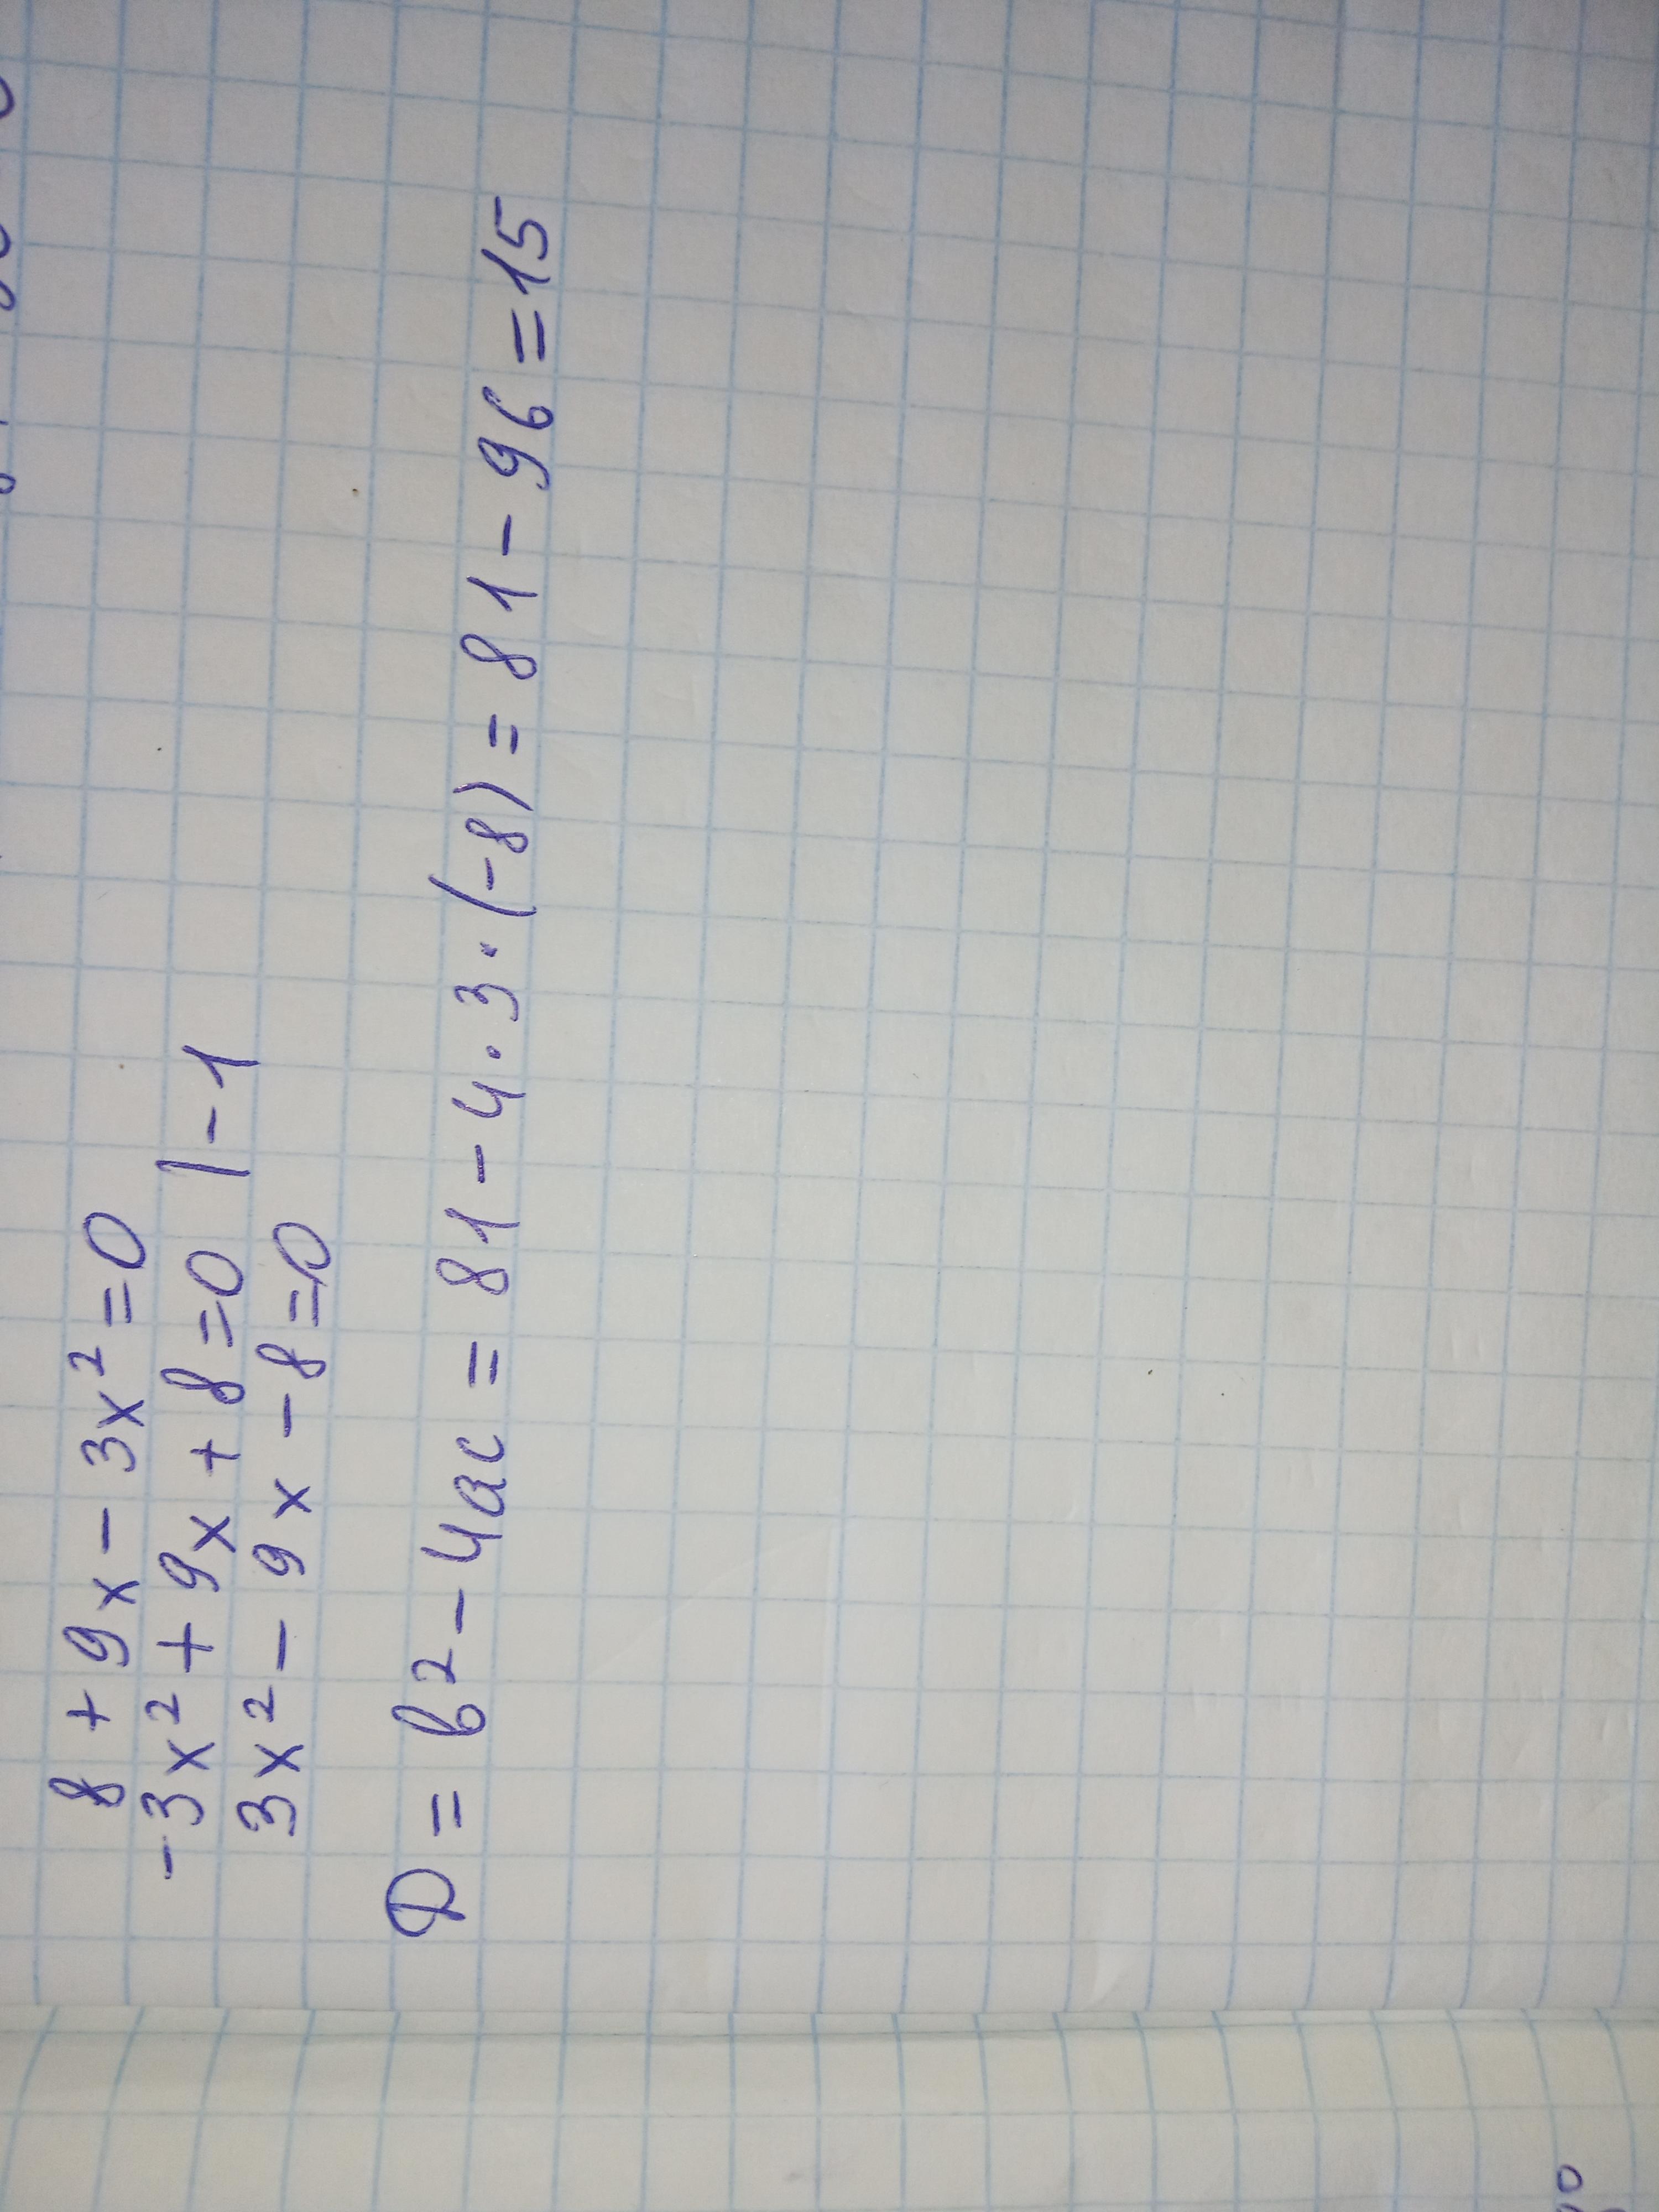 8 + 9x - 3x² = 0
-3x² + 9x + 8 = 0 | -1
3x² - 9x - 8 = 0
D = b² - 4ac = 81 - 4 · 3 · (-8) = 81 - 96 = 15